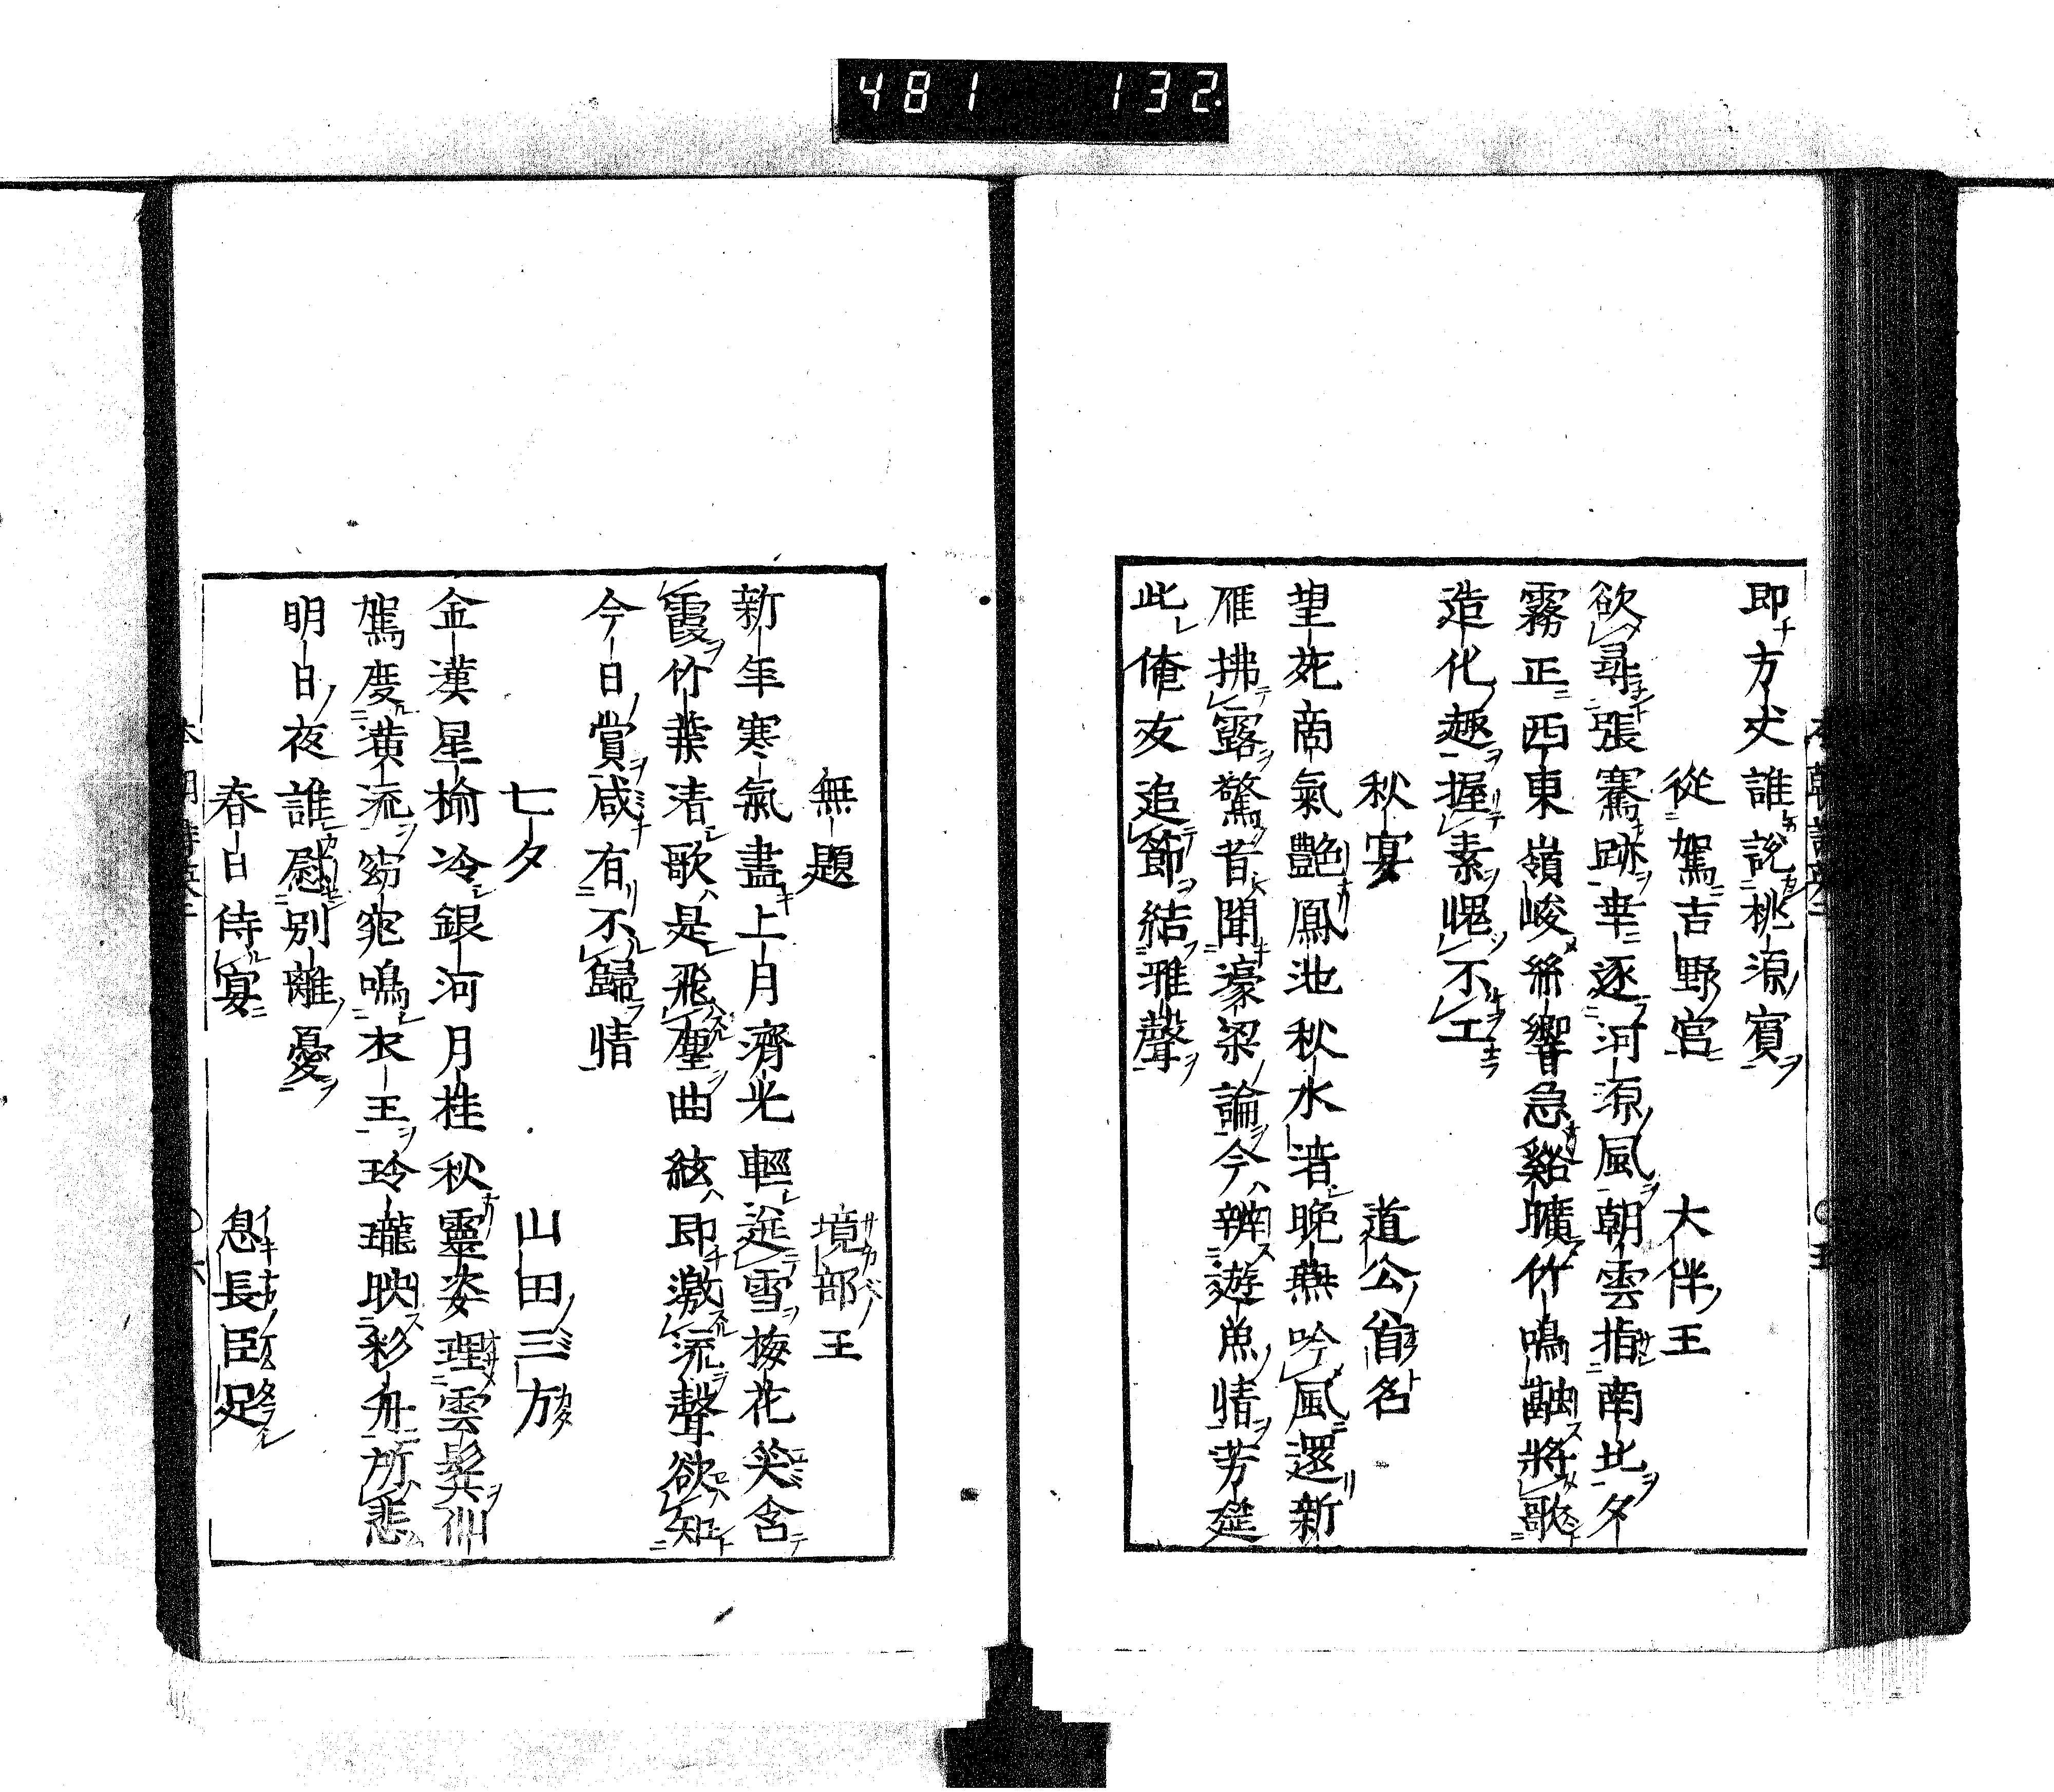 481 132
即方丈誰說桃源賓
從駕吉野宮 大伴王
欲尋張騫跡幸逐河源風朝雲指南北夕
霧正西東嶺峻絲響急谿曠竹鳴融將歌
造化趣握素愧不工
秋宴 道公首名
望苑商氣艶鳳池秋水清晚燕吟風還新
雁拂露驚昔聞濠梁論今辨遊魚情芳筵
此僚友追節結雅聲
無題 境部王
新年寒氣盡上月濟光輕送雪梅花笑含
霞竹葉清歌是飛塵曲絃即激流聲欲知
今日賞咸有不歸情
七夕 山田三方
金漢星榆冷銀河月桂秋靈姿理雲鬢仙
駕度潢流窈窕鳴衣玉玲瓏映彩舟所悲
明日夜誰慰別離憂
春日侍宴 息長臣足